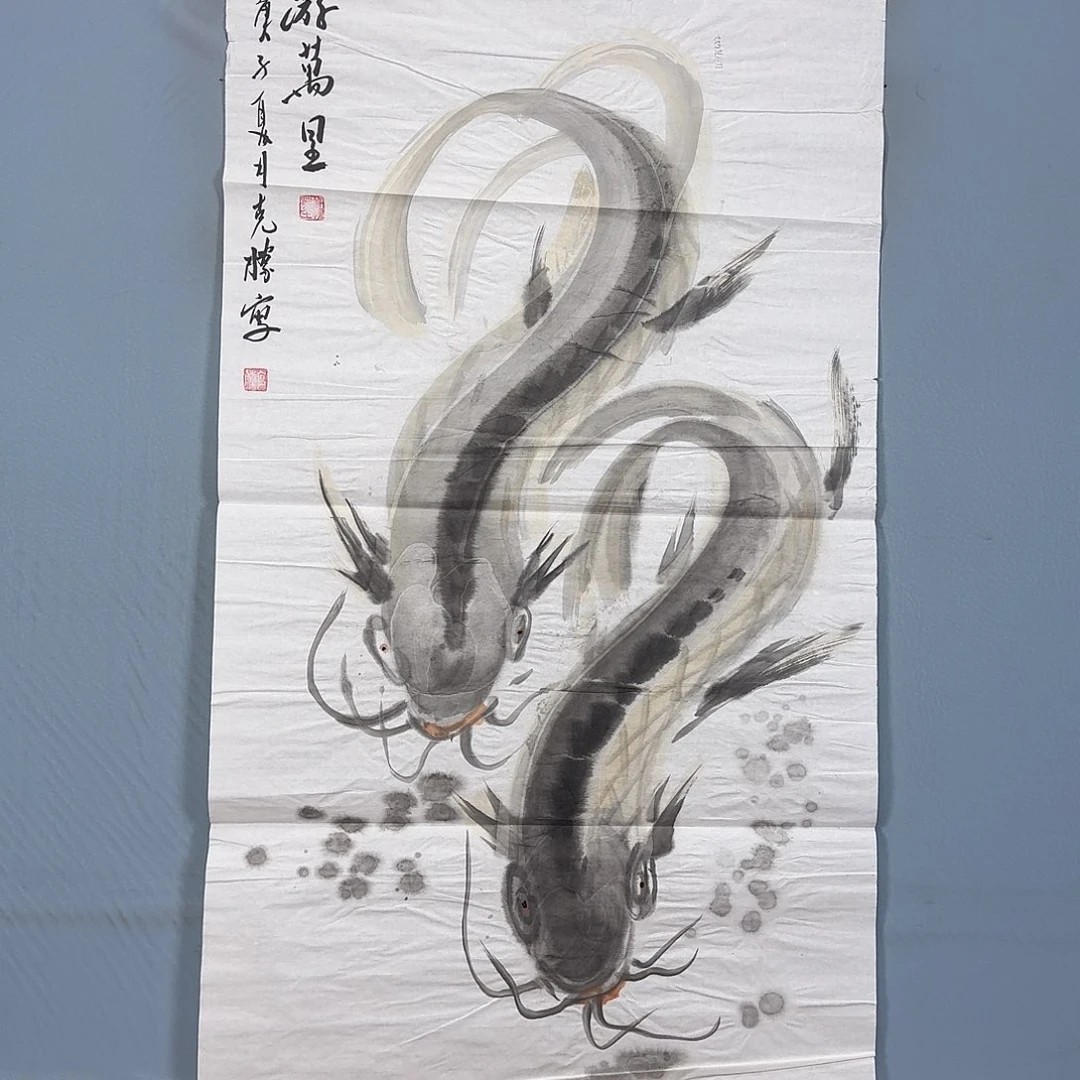 游萬里
庚子夏月克勝寫